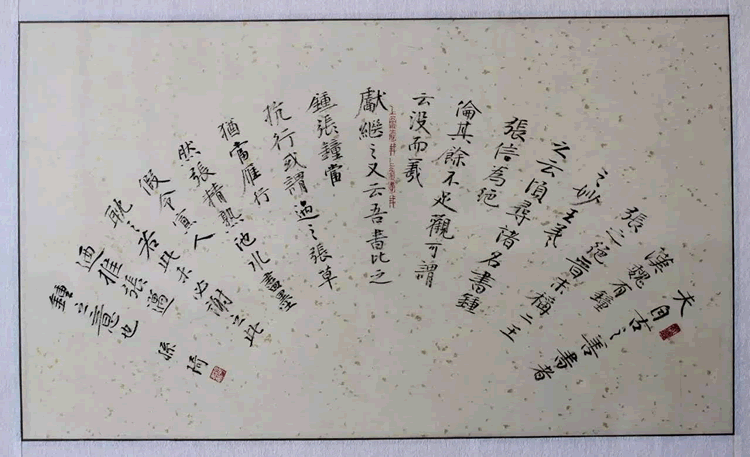 夫自古之善書者
漢魏有鍾
張之絕晉末稱二王
之妙王羲
之云頃尋諸名書鍾
張信為絕
倫其餘不足觀可謂
云没而羲
獻繼之又云吾書比之
鍾張鍾當
抗行或謂過之張草
猶當雁行
然張精熟池水盡墨
假令寡人
耽之若此未必謝之此
迺推張邁
鍾之意也
孫琦